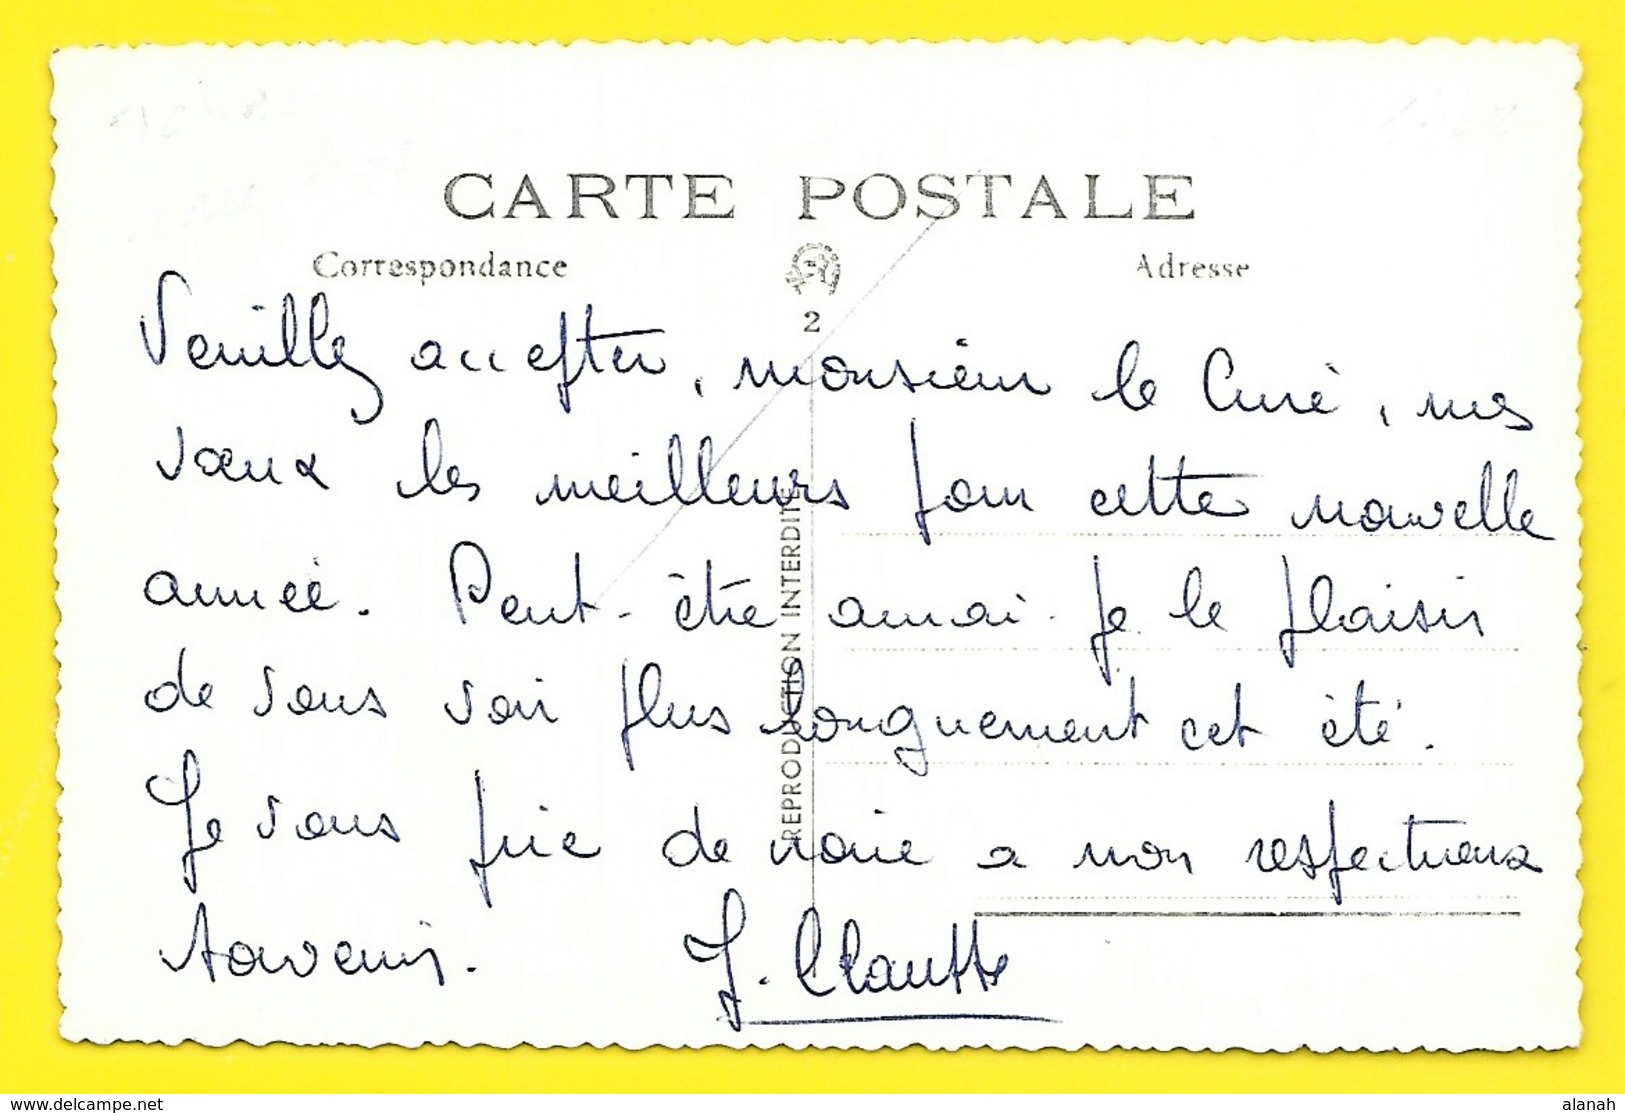 CARTE POSTALE
Correspondance
Adresse
2
REPRODUCTION INTERDITE
Veuillez accepter, monsieur le Curé, mes
vœux les meilleurs pour cette nouvelle
année. Peut-être aurai-je le plaisir
de vous voir plus longuement cet été.
Je vous prie de croire à mon respectueux
souvenir.
delcampe.net
alanah